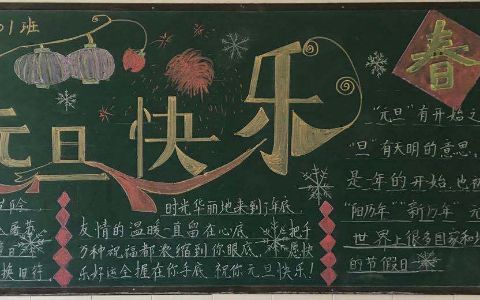 01班
元旦快乐
春
时光华丽地来到了年底,
友情的温暖一直留在心底。把
万种祝福都浓缩到你眼底,愿快
乐好运全握在你手底,祝你元旦快乐!
换旧符
"元旦"有开始之
"旦"有天明的意思,
是一年的开始,也被
"阳历年""新历年"元
世界上很多国家和地
的节假日